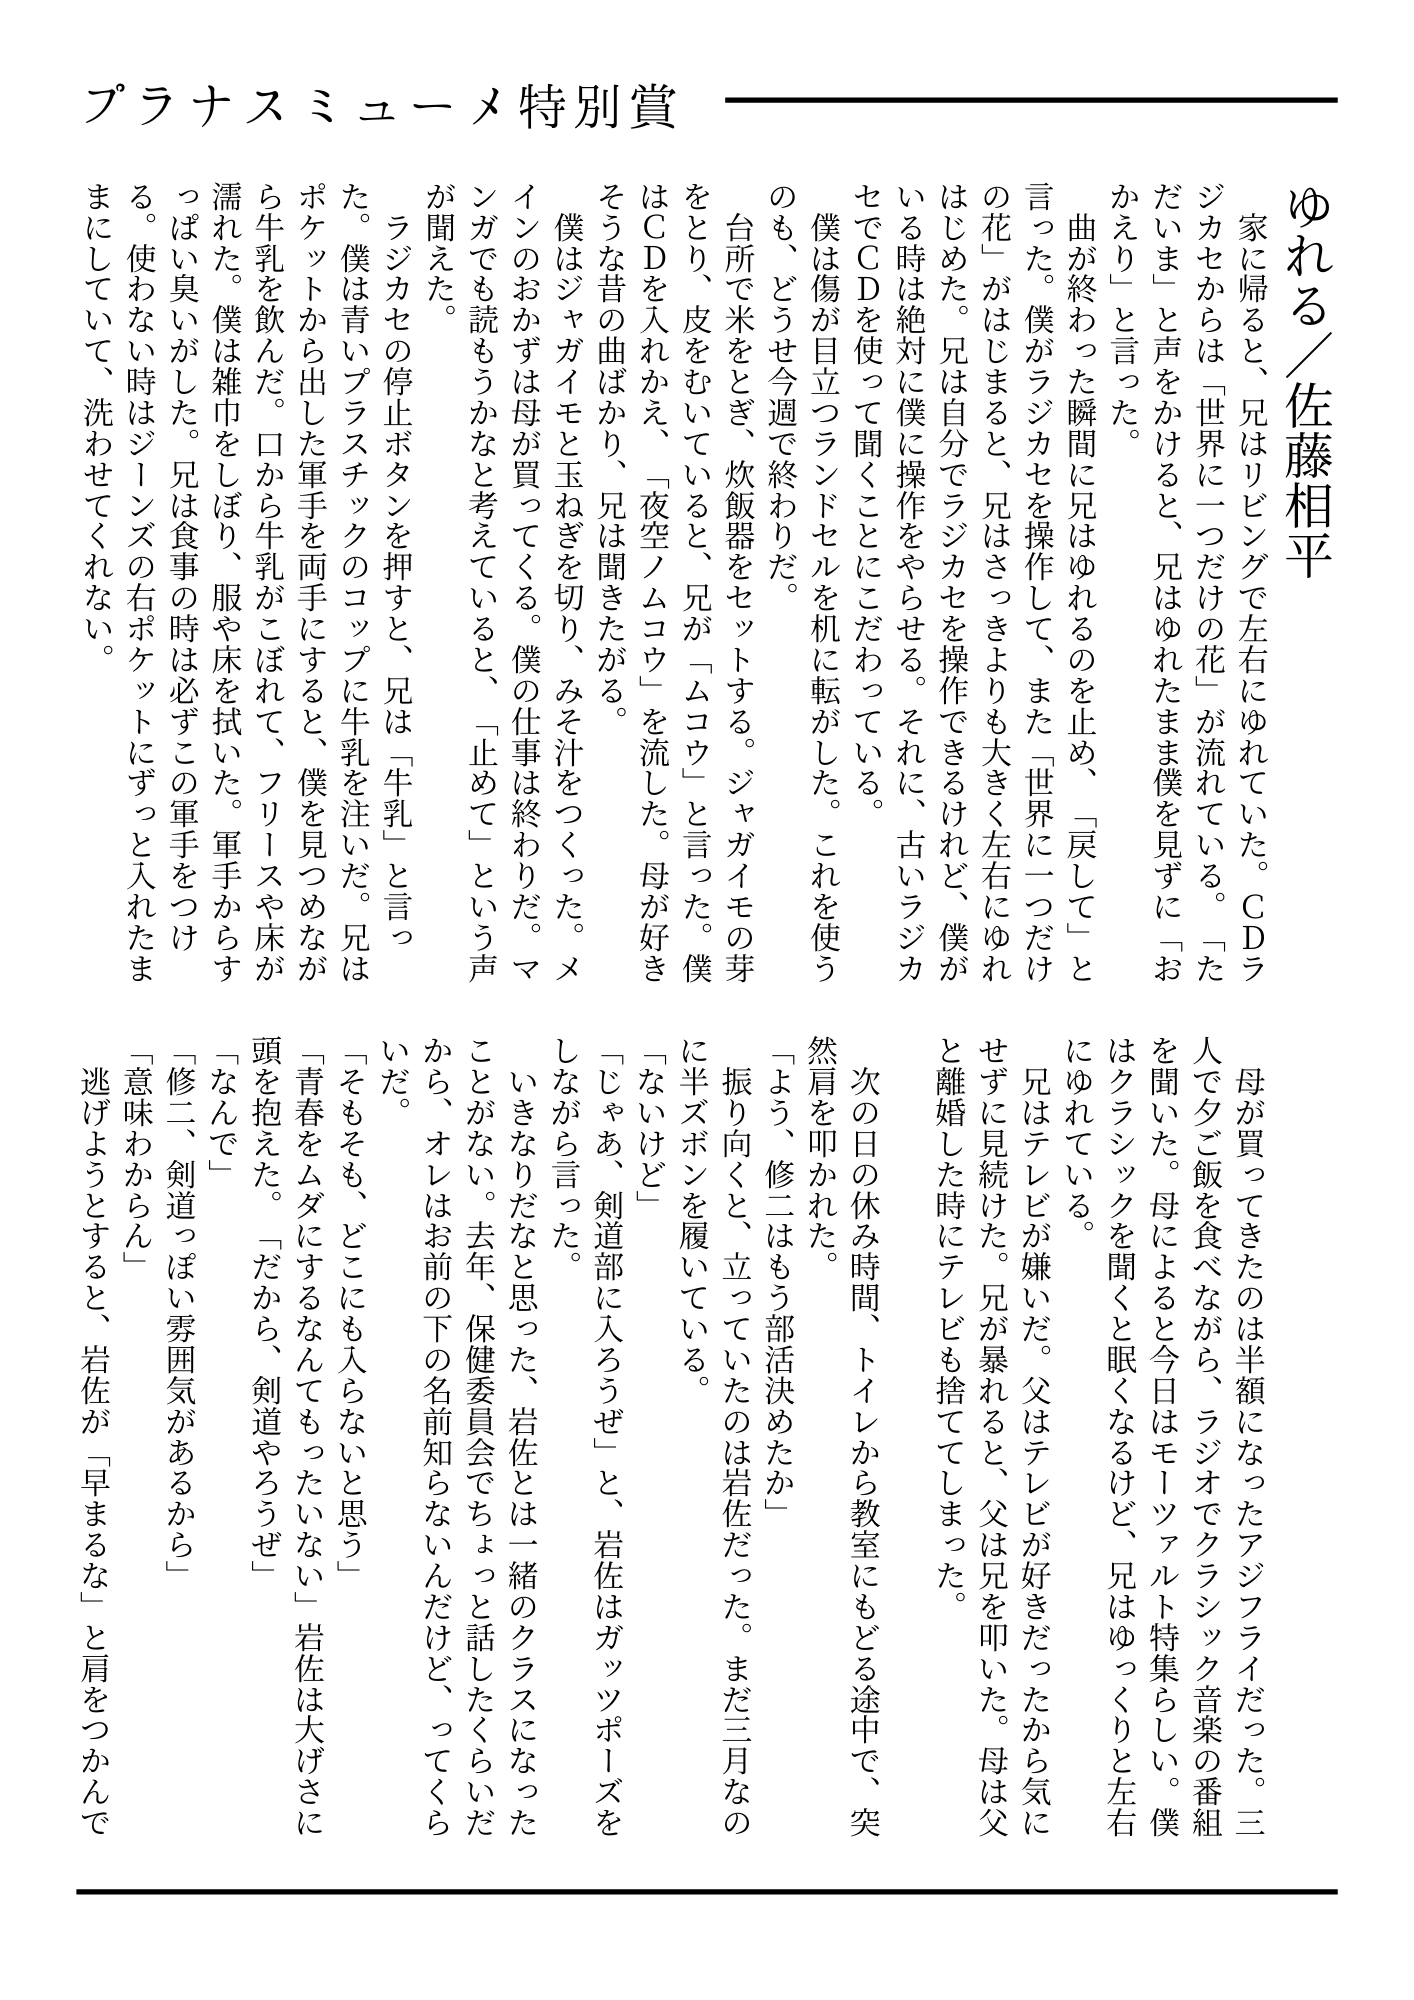 プラナスミューメ特別賞
ゆれる／佐藤相平
　家に帰ると、兄はリビングで左右にゆれていた。ＣＤラ
ジカセからは「世界に一つだけの花」が流れている。「た
だいま」と声をかけると、兄はゆれたまま僕を見ずに「お
かえり」と言った。
　曲が終わった瞬間に兄はゆれるのを止め、「戻して」と
言った。僕がラジカセを操作して、また「世界に一つだけ
の花」がはじまると、兄はさっきよりも大きく左右にゆれ
はじめた。兄は自分でラジカセを操作できるけれど、僕が
いる時は絶対に僕に操作をやらせる。それに、古いラジカ
セでＣＤを使って聞くことにこだわっている。
　僕は傷が目立つランドセルを机に転がした。これを使う
のも、どうせ今週で終わりだ。
　台所で米をとぎ、炊飯器をセットする。ジャガイモの芽
をとり、皮をむいていると、兄が「ムコウ」と言った。僕
はＣＤを入れかえ、「夜空ノムコウ」を流した。母が好き
そうな昔の曲ばかり、兄は聞きたがる。
　僕はジャガイモと玉ねぎを切り、みそ汁をつくった。メ
インのおかずは母が買ってくる。僕の仕事は終わりだ。マ
ンガでも読もうかなと考えていると、「止めて」という声
が聞えた。
　ラジカセの停止ボタンを押すと、兄は「牛乳」と言っ
た。僕は青いプラスチックのコップに牛乳を注いだ。兄は
ポケットから出した軍手を両手にすると、僕を見つめなが
ら牛乳を飲んだ。口から牛乳がこぼれて、フリースや床が
濡れた。僕は雑巾をしぼり、服や床を拭いた。軍手からす
っぱい臭いがした。兄は食事の時は必ずこの軍手をつけ
る。使わない時はジーンズの右ポケットにずっと入れたま
まにしていて、洗わせてくれない。
　母が買ってきたのは半額になったアジフライだった。三
人で夕ご飯を食べながら、ラジオでクラシック音楽の番組
を聞いた。母によると今日はモーツァルト特集らしい。僕
はクラシックを聞くと眠くなるけど、兄はゆっくりと左右
にゆれている。
　兄はテレビが嫌いだ。父はテレビが好きだったから気に
せずに見続けた。兄が暴れると、父は兄を叩いた。母は父
と離婚した時にテレビも捨ててしまった。
　次の日の休み時間、トイレから教室にもどる途中で、突
然肩を叩かれた。
「よう、修二はもう部活決めたか」
　振り向くと、立っていたのは岩佐だった。まだ三月なの
に半ズボンを履いている。
「ないけど」
「じゃあ、剣道部に入ろうぜ」と、岩佐はガッツポーズを
しながら言った。
　いきなりだなと思った、岩佐とは一緒のクラスになった
ことがない。去年、保健委員会でちょっと話したくらいだ
から、オレはお前の下の名前知らないんだけど、ってくら
いだ。
「そもそも、どこにも入らないと思う」
「青春をムダにするなんてもったいない」岩佐は大げさに
頭を抱えた。「だから、剣道やろうぜ」
「なんで」
「修二、剣道っぽい雰囲気があるから」
「意味わからん」
　逃げようとすると、岩佐が「早まるな」と肩をつかんで